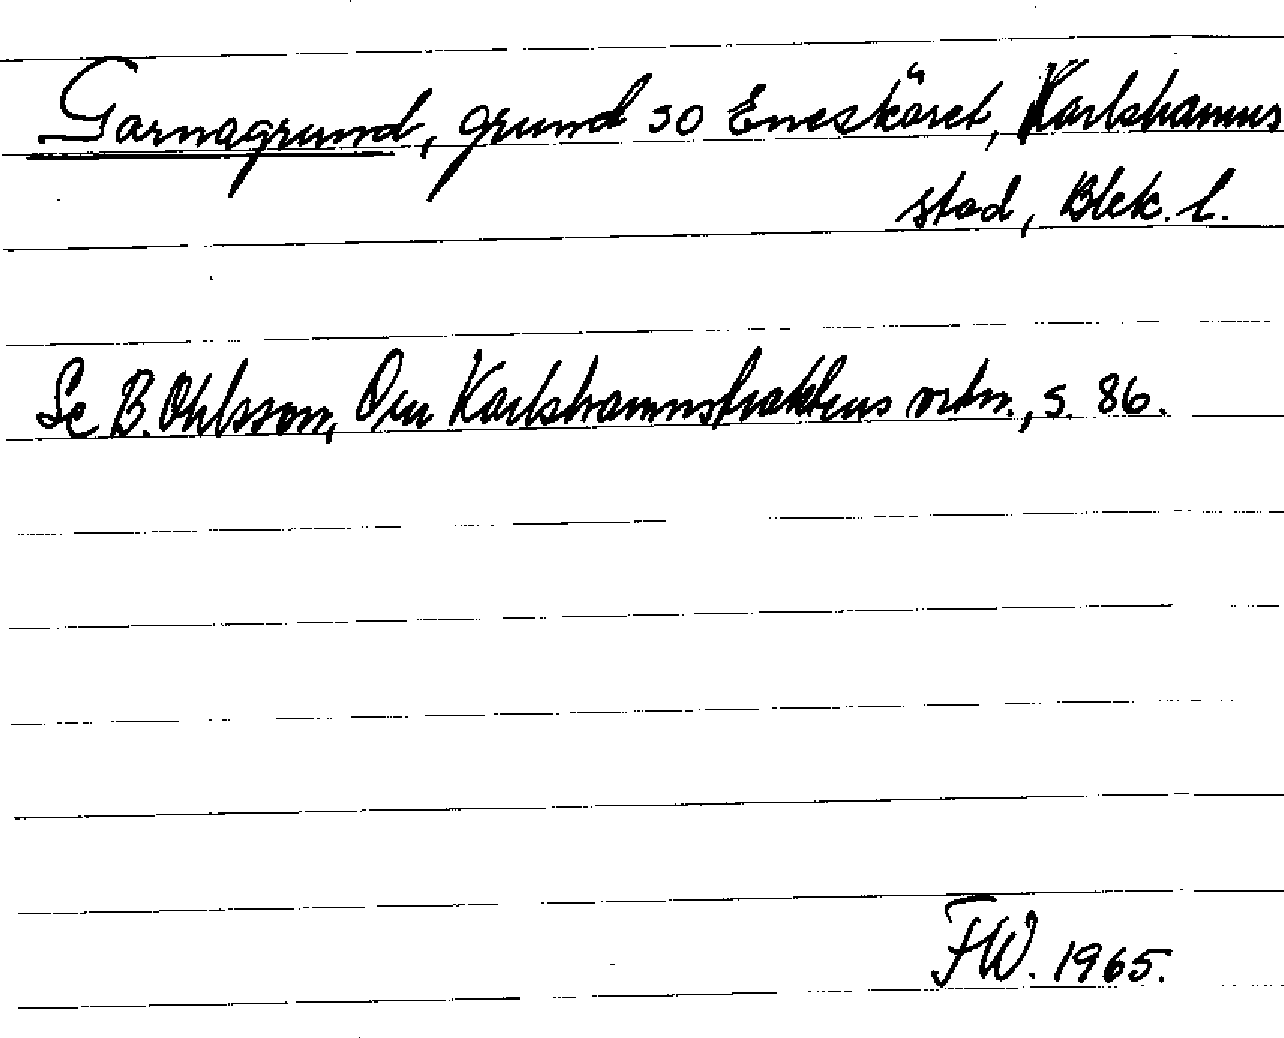 Garnagrund, grund SO Eneskäret, Karlshamns
stad, Blek. l.
Se B. Ohlsson, Om Karlshamnstraktens ortn., s. 86.
FW. 1965.